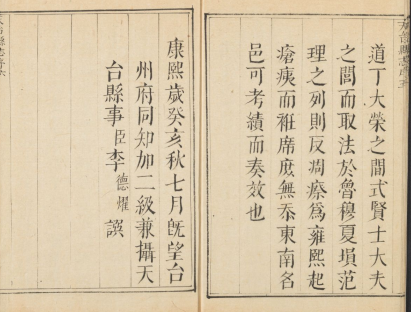 道丁大榮之間式賢士大夫
之閭而取法於魯穆夏塤范
理之列則反凋瘵爲雍熙起
瘡痍而袵席庶無忝東南名
邑可考績而奏效也
康熙歲癸亥秋七月旣望台
州府同知加二級兼攝天
台縣事臣李德耀譔